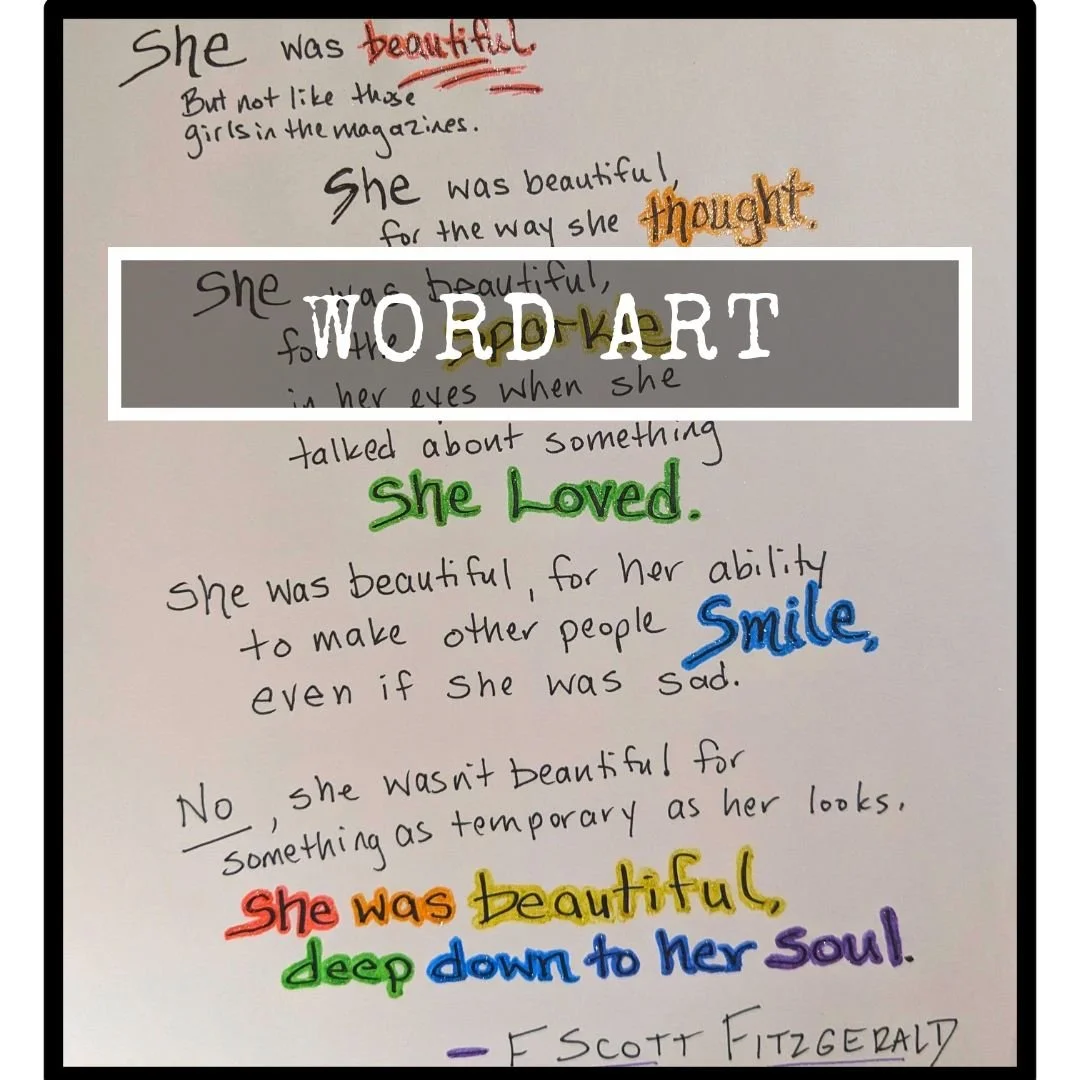 She was beautiful.
But not like those
girls in the magazines.
She was beautiful,
for the way she thought.
She was beautiful,
for the sparkle
WORD ART
in her eyes when she
talked about something
She Loved.
She was beautiful, for her ability
to make other people Smile,
even if she was sad.
No, she wasn't beautiful for
something as temporary as her looks.
She was beautiful,
deep down to her soul.
- F SCOTT FITZGERALD